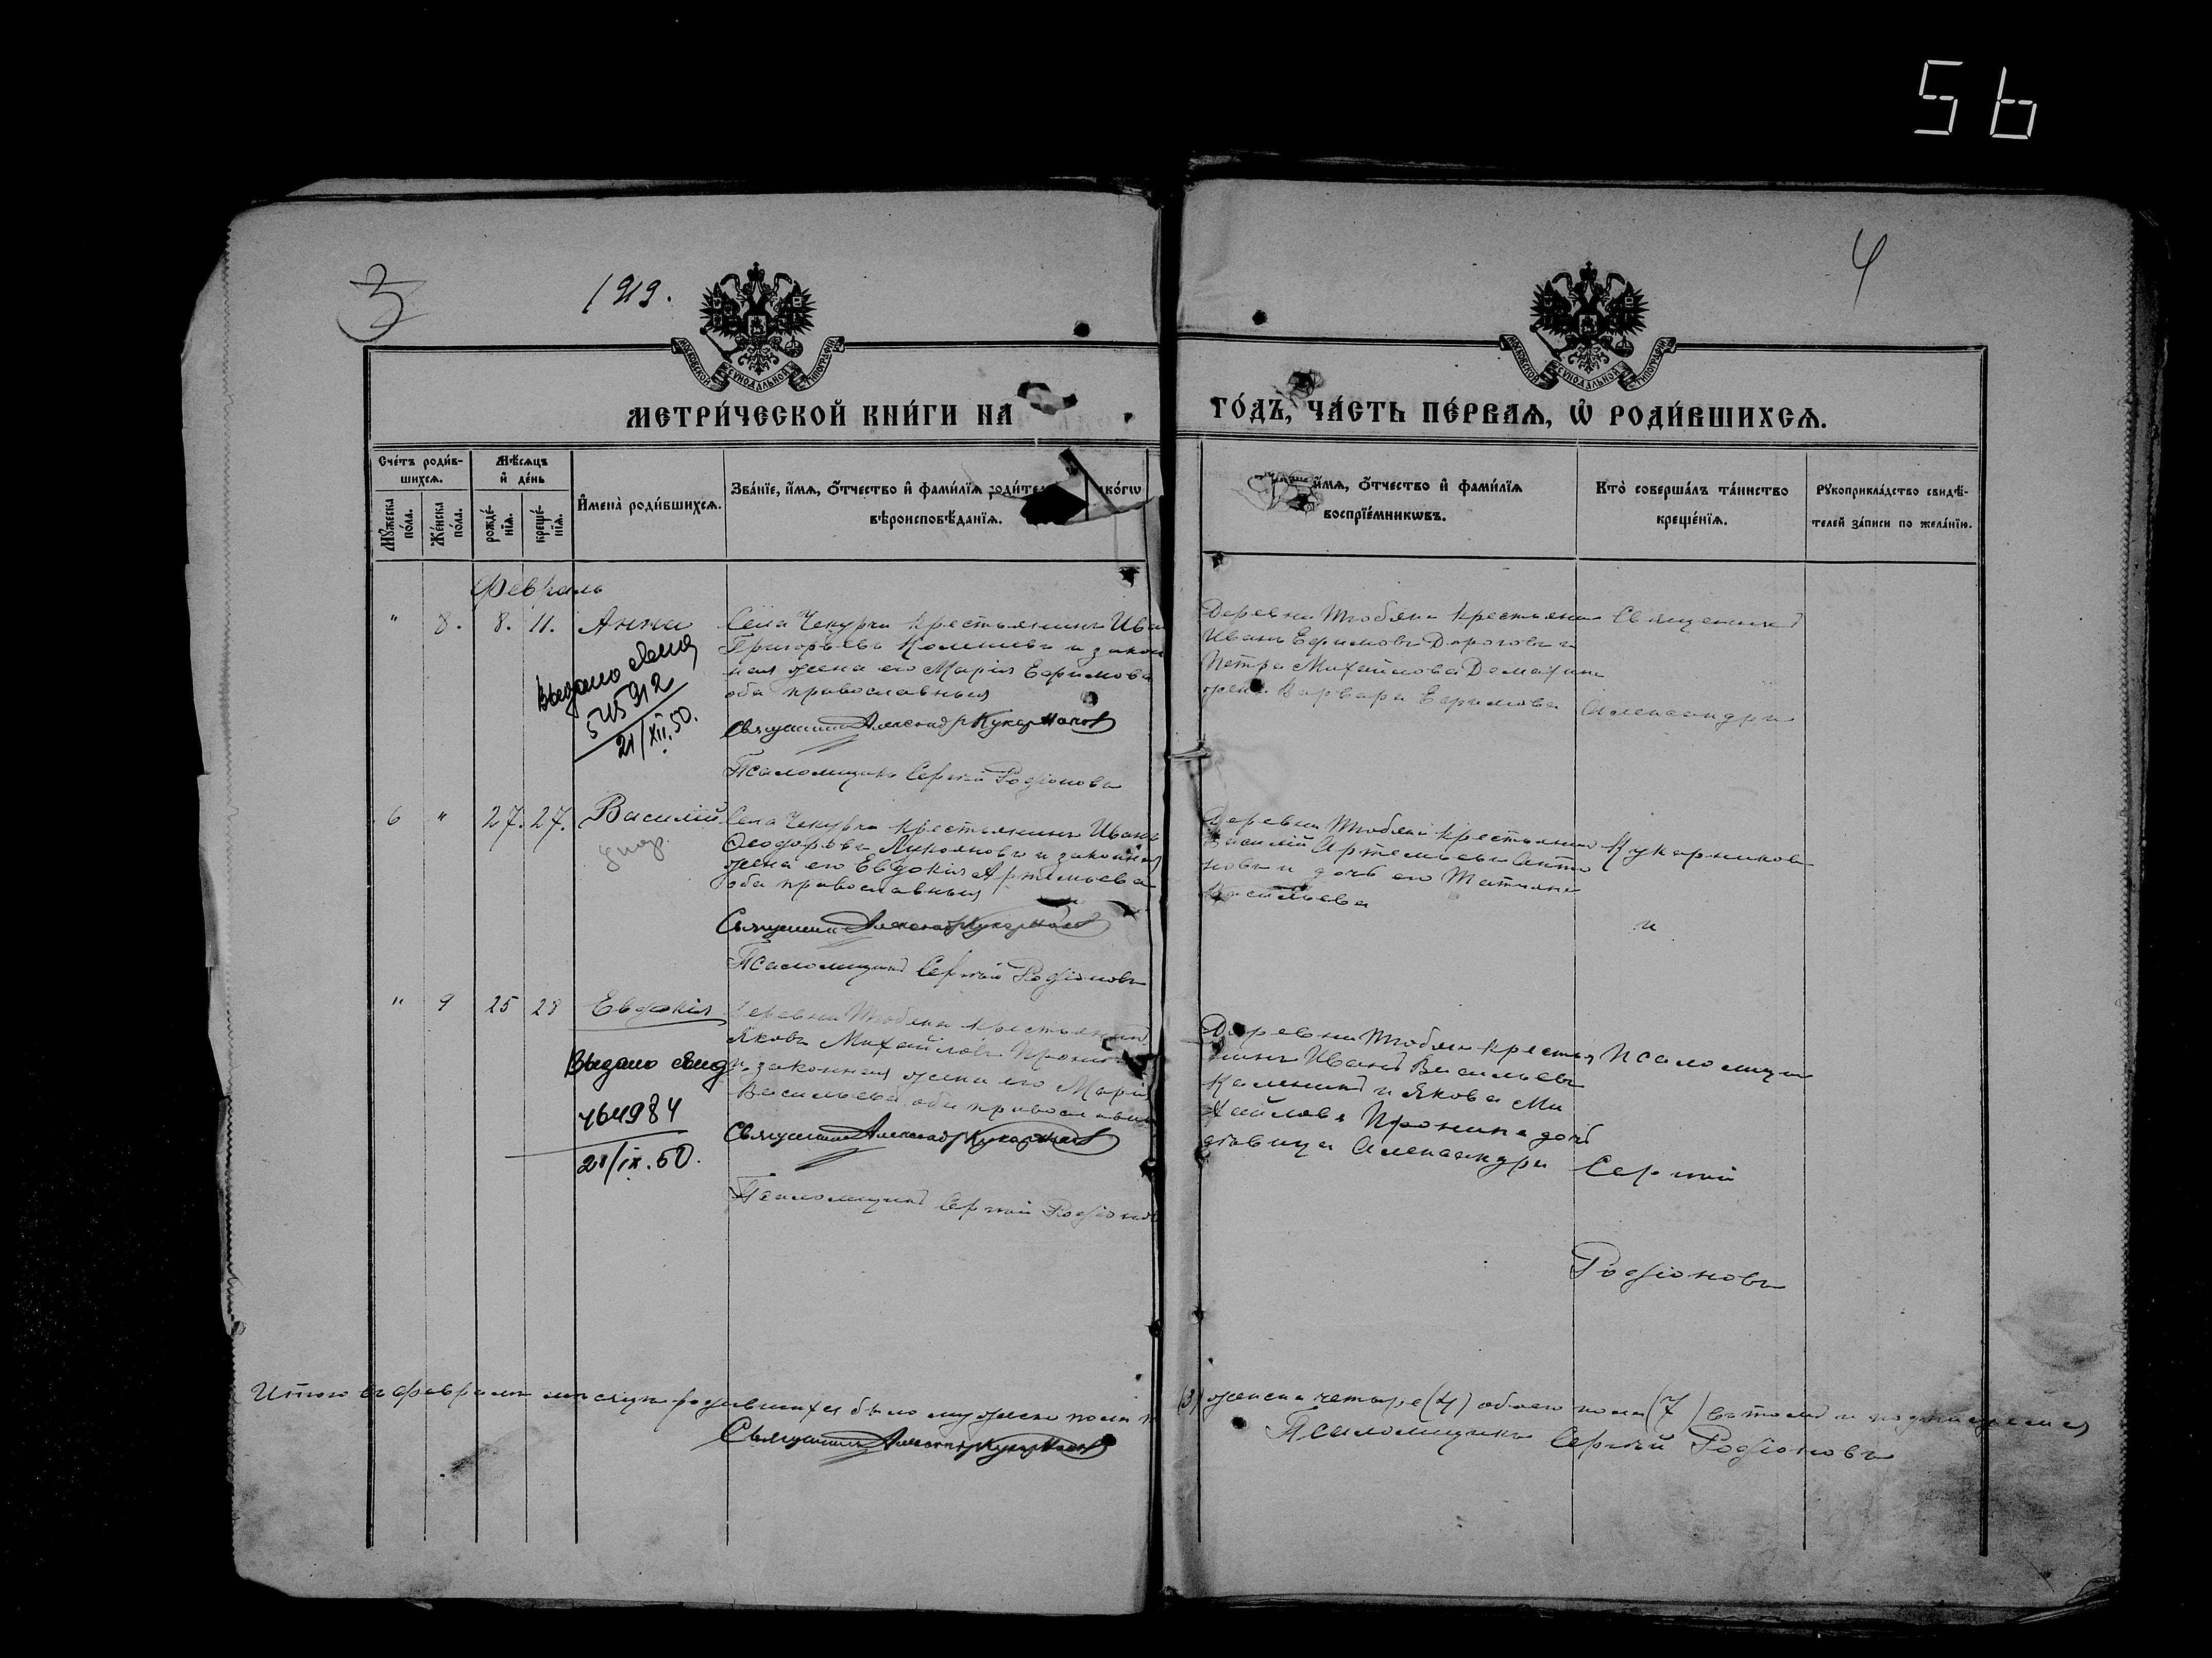 56
3
1919.
4
МОСКОВСКОЙ СѴНОДАЛЬНОЙ ТИПОГРАФІИ
МОСКОВСКОЙ СѴНОДАЛЬНОЙ ТИПОГРАФІИ
МЕТРИ́ЧЕСКОЙ КНИ́ГИ НА
ГО́ДЪ, ЧА́СТЬ ПЕ́РВАѦ, Ѡ҆ РОДИ́ВШИХСѦ.
Сче́тъ роди́в-
шихсѧ.
Мꙋ́жеска по́ла.
Же́нска по́ла.
Мѣ́сѧцъ
и҆ де́нь
рожде́-нїѧ.
креще́-нїѧ.
И҆мена̀ роди́вшихсѧ.
Зва́нїе, и҆́мѧ, ѻ҆́тчество и҆ фами́лїѧ роди́те ко́гѡ
вѣроисповѣ́данїѧ.
и҆́мѧ, ѻ҆́тчество и҆ фами́лїѧ
воспрїе́мникѡвъ.
Кто̀ соверша́лъ та́инство
креще́нїѧ.
Рꙋкоприкла́дство свидѣ́-
телей за́писи по жела́нїю.
Февраль
" 8. 8. 11. Анна
Села Чекурча крестьянинъ Ива
Григорьевъ и закон
ная жена его Марія Ефимова
оба православныя
Священникъ Александръ Кукарников
Псаломщикъ Сергій Родіоновъ
Выдано свид
545912
21/XII.50.
Деревни Тюбяка крестьянин
Иванъ Ефимовъ Дороговъ и
Петра Михайлова
жена Варвара Ефимова
Священник
Александръ
6 " 27. 27. Василій
Села Чекурча крестьянинъ Иванъ
Ѳеодоровъ и законная
жена его Евдокія Артемьева
оба православныя
Священник Александръ Кукарников
Псаломщикъ Сергій Родіоновъ
Деревни Тюбяка крестьянин
Василій Артемьевъ Анто
новъ и дочь его Татьяна
Васильева
Кукарников
и
" 9 25 28 Евдокія
Деревни Тюбяка крестьянин
Яковъ Михайловъ Прони
и законная жена его Марія
Васильева оба православны
Священник Александръ Кукарников
Псаломщикъ Сергій Родіонов
Выдано свид
464984
21/IX.50.
Деревни Тюбяка крестья
нинъ Иванъ Васильевъ
и Якова Ми
хайлова Пронина дочь
дѣвица Александра
Псаломщи
Сергій
Родіоновъ
Итого въ февралѣ мѣсяцѣ родившихся было мужска пола (3) женска четыре (4) обоего пола (7) въ томъ и подписуемся
Священникъ Александръ Кукарников
Псаломщикъ Сергій Родіоновъ